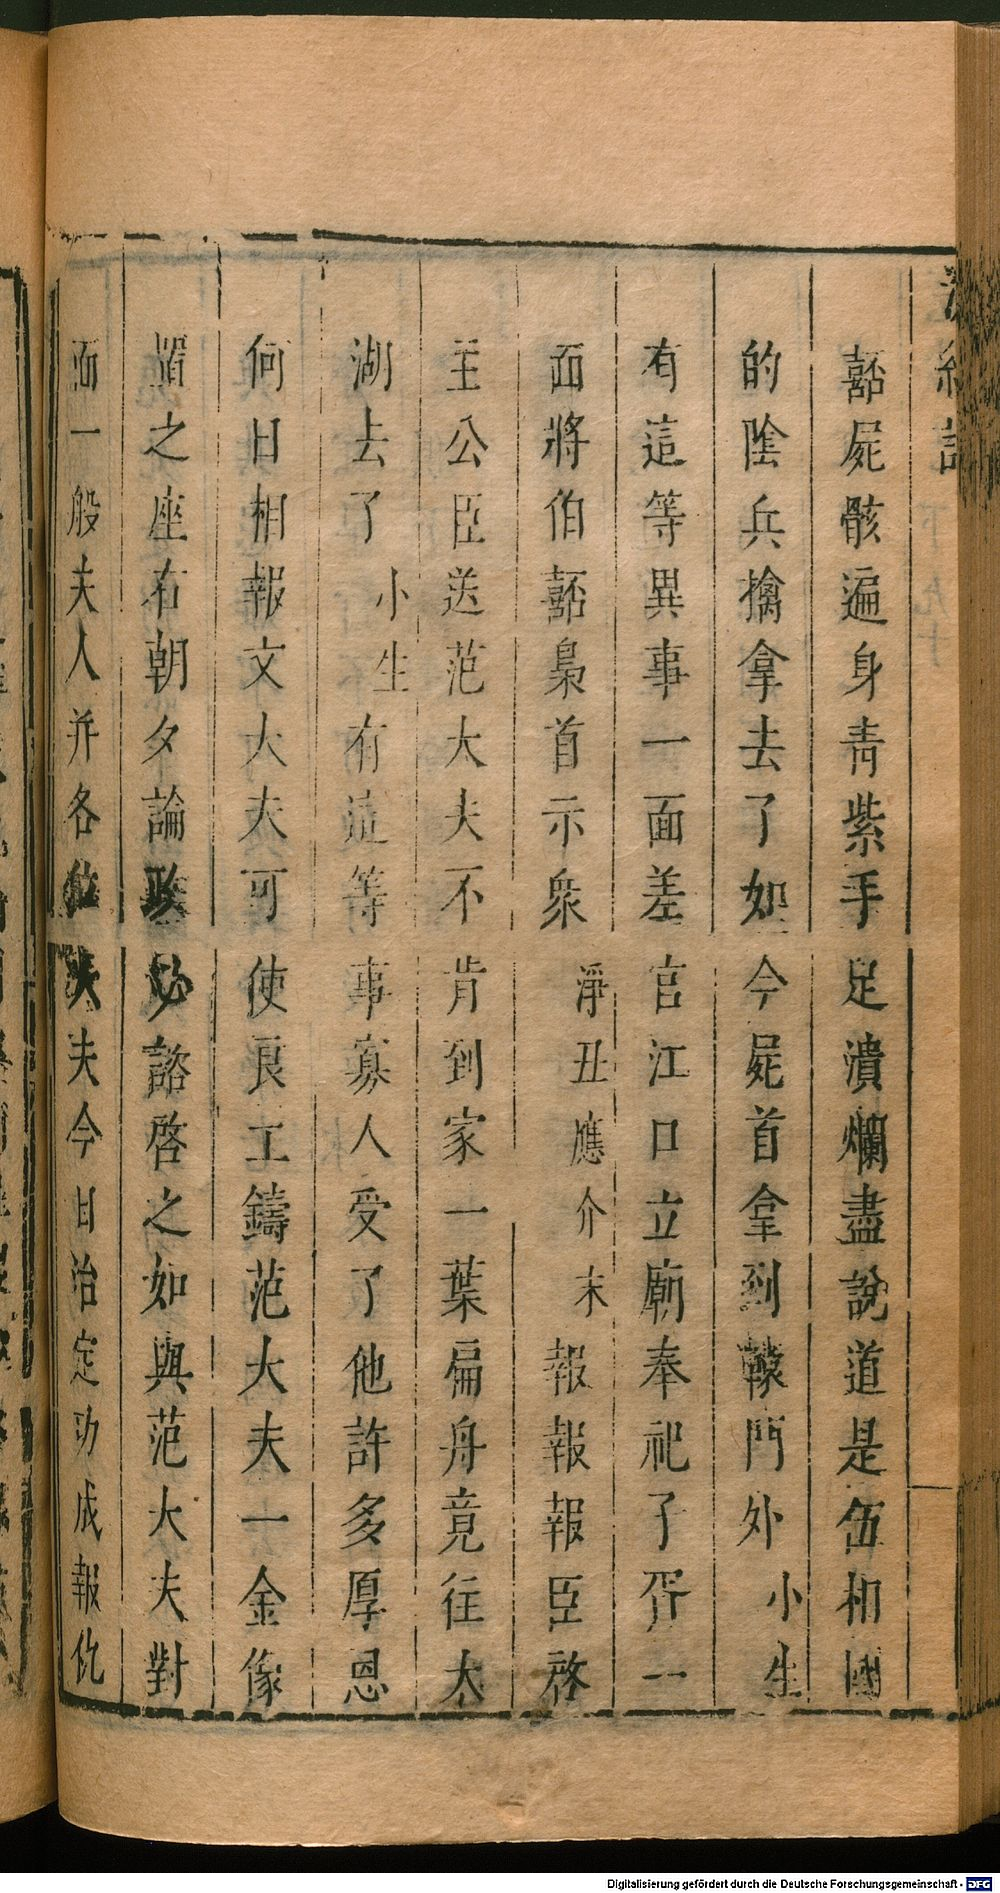 浣紗記
嚭屍骸遍身青紫手足潰爛盡說道是伍相國
的陰兵擒拿去了如今屍首拿到轅門外小生
有這等異事一面差官江口立廟奉祀子胥一
面將伯嚭梟首示衆淨丑應介末報報報臣啓
主公臣送范大夫不肯到家一葉扁舟竟往太
湖去了小生有這等事寡人受了他許多厚恩
何日相報文大夫可使良工鑄范大夫一金像
置之座右朝夕論政必諮啓之如與范大夫對
面一般夫人并各位大夫今日治定功成報仇
Digitalisierung gefördert durch die Deutsche Forschungsgemeinschaft - DFG